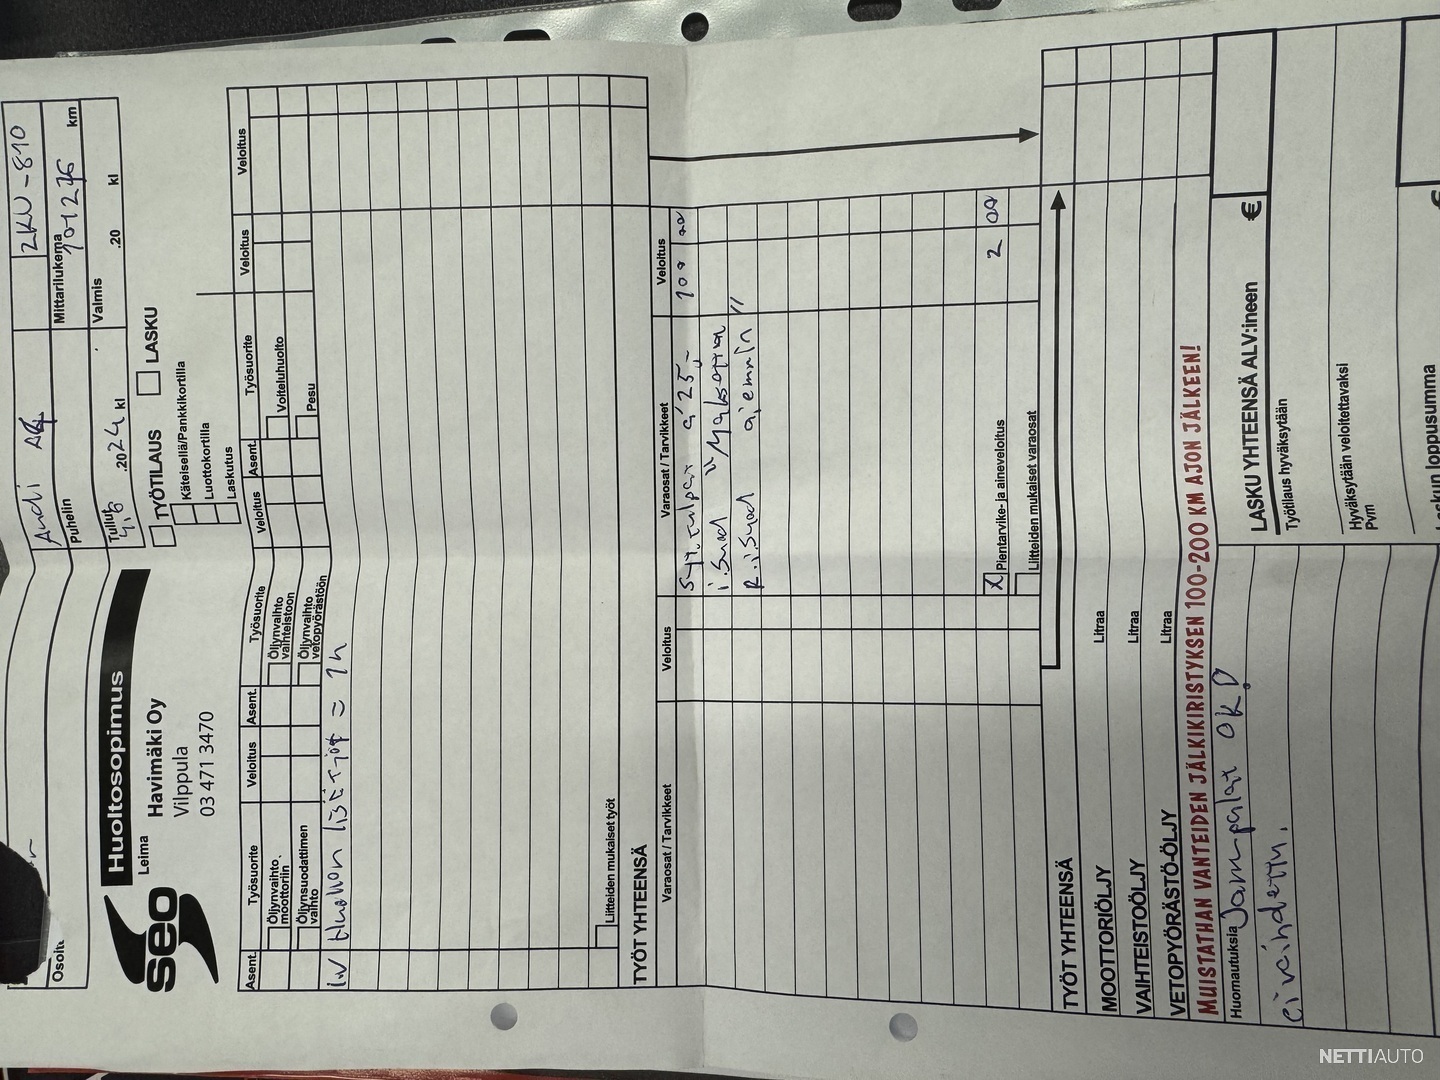 Osoite
Audi A4
ZKU-810
Puhelin
Mittarilukema
km
Tullut
.2024 kl
Valmis
.20
kl
seo
Huoltosopimus
Leima
Havimäki Oy
Vilppula
03 471 3470
TYÖTILAUS
LASKU
Käteisellä/Pankkikortilla
Luottokortilla
Laskutus
Asent. Työsuorite Veloitus Asent. Työsuorite Veloitus Asent. Työsuorite Veloitus Veloitus
Öljynvaihto moottoriin
Öljynvaihto vaihteistoon
Voiteluhuolto
Öljynsuodattimen vaihto
Öljynvaihto vetopyörästöön
Pesu
huollon lisätyöt = 1h
Liitteiden mukaiset työt
TYÖT YHTEENSÄ
Varaosat / Tarvikkeet Veloitus Varaosat / Tarvikkeet Veloitus
Syt. tulpat á 25,- 100 00
i.suod "Maksettu
R.i.suod aiemmin"
X Pientarvike- ja aineveloitus 2 00
Liitteiden mukaiset varaosat
TYÖT YHTEENSÄ
MOOTTORIÖLJY Litraa
VAIHTEISTOÖLJY Litraa
VETOPYÖRÄSTÖ-ÖLJY Litraa
MUISTATHAN VANTEIDEN JÄLKIKIRISTYKSEN 100-200 KM AJON JÄLKEEN!
Huomautuksia Jarrupalat OK!
ei vaihdettu.
LASKU YHTEENSÄ ALV:ineen €
Työtilaus hyväksytään
Hyväksytään veloitettavaksi
Pvm
Laskun loppusumma €
NETTIAUTO